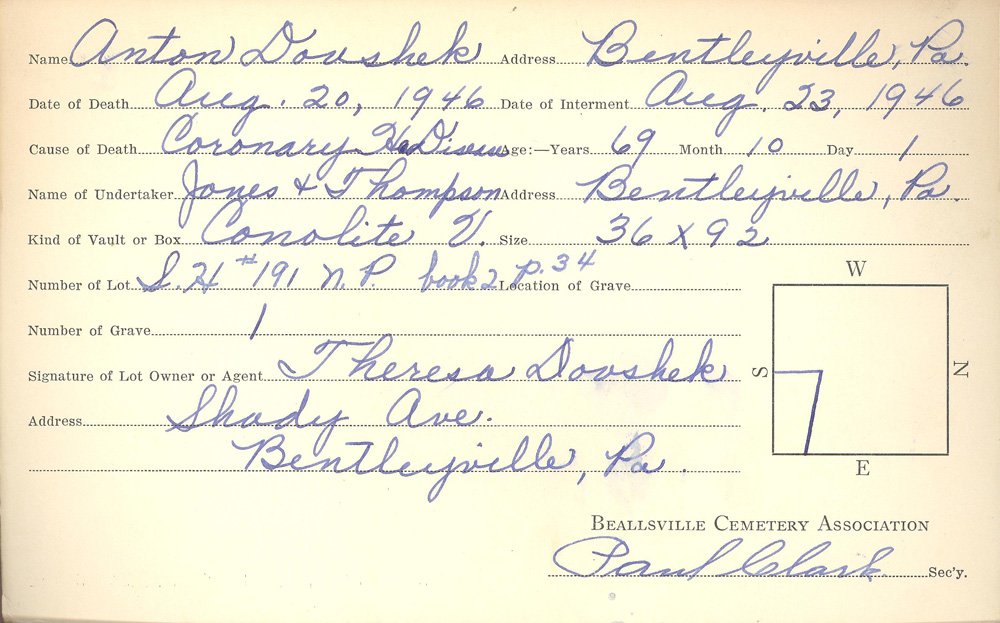 Name Anton Dovshek Address Bentleyville, Pa.
Date of Death Aug. 20, 1946 Date of Interment Aug. 23, 1946
Cause of Death Coronary Age:—Years 69 Month 10 Day 1
Name of Undertaker Jones & Thompson Address Bentleyville, Pa.
Kind of Vault or Box Conolite V. Size 36 x 92
Number of Lot S. H #191 N. P. book 2 p. 34 Location of Grave
W
Number of Grave 1
Signature of Lot Owner or Agent Theresa Dovshek
S N
Address Shady Ave.
Bentleyville, Pa.
E
BEALLSVILLE CEMETERY ASSOCIATION
Paul Clark Sec'y.